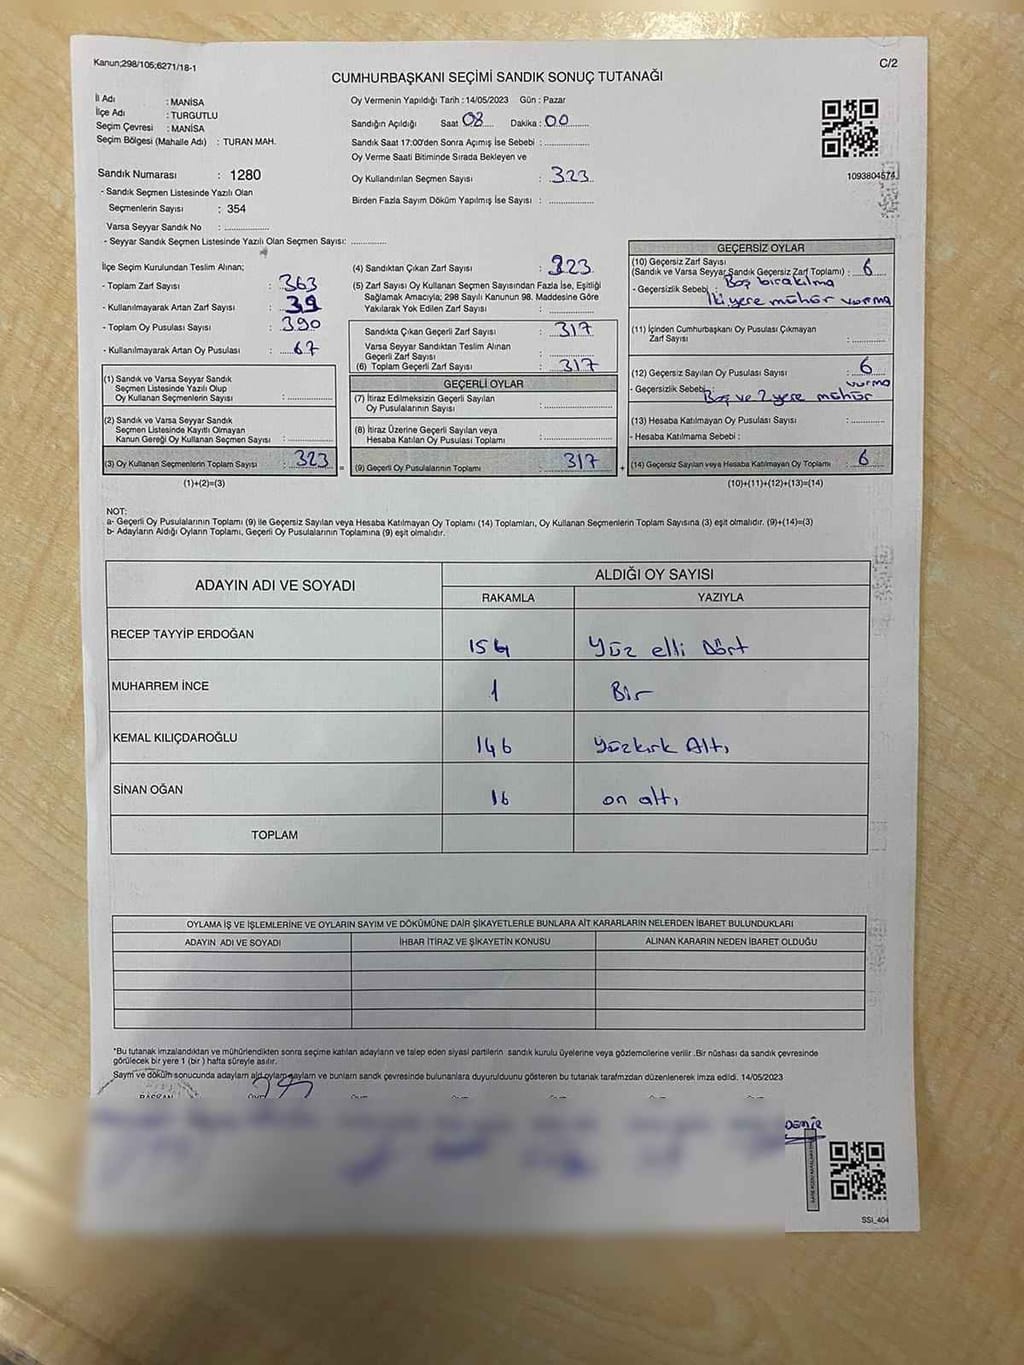 Kanun;298/105;6271/18-1
C/2
CUMHURBAŞKANI SEÇİMİ SANDIK SONUÇ TUTANAĞI
İl Adı : MANİSA
İlçe Adı : TURGUTLU
Seçim Çevresi : MANİSA
Seçim Bölgesi (Mahalle Adı) : TURAN MAH.
Sandık Numarası : 1280
- Sandık Seçmen Listesinde Yazılı Olan
Seçmenlerin Sayısı : 354
Varsa Seyyar Sandık No : ..............
- Seyyar Sandık Seçmen Listesinde Yazılı Olan Seçmen Sayısı: ............
Oy Vermenin Yapıldığı Tarih : 14/05/2023 Gün : Pazar
Sandığın Açıldığı Saat 08 Dakika : 00
Sandık Saat 17:00'den Sonra Açımış İse Sebebi : ..............
Oy Verme Saati Bitiminde Sırada Bekleyen ve
Oy Kullandırılan Seçmen Sayısı : 323
Birden Fazla Sayım Döküm Yapılmış İse Sayısı : ..............
1093804574
İlçe Seçim Kurulundan Teslim Alınan;
- Toplam Zarf Sayısı : 363
- Kullanılmayarak Artan Zarf Sayısı : 39
- Toplam Oy Pusulası Sayısı : 390
- Kullanılmayarak Artan Oy Pusulası : 67
(1) Sandık ve Varsa Seyyar Sandık
Seçmen Listesinde Yazılı Olup
Oy Kullanan Seçmenlerin Sayısı : ..............
(2) Sandık ve Varsa Seyyar Sandık
Seçmen Listesinde Kayıtlı Olmayan
Kanun Gereği Oy Kullanan Seçmen Sayısı : ..............
(3) Oy Kullanan Seçmenlerin Toplam Sayısı : 323 =
(1)+(2)=(3)
(4) Sandıktan Çıkan Zarf Sayısı : 323
(5) Zarf Sayısı Oy Kullanan Seçmen Sayısından Fazla İse, Eşitliği
Sağlamak Amacıyla; 298 Sayılı Kanunun 98. Maddesine Göre
Yakılarak Yok Edilen Zarf Sayısı : ..............
Sandıkta Çıkan Geçerli Zarf Sayısı : 317
Varsa Seyyar Sandıktan Teslim Alınan
Geçerli Zarf Sayısı : ..............
(6) Toplam Geçerli Zarf Sayısı : 317
GEÇERLİ OYLAR
(7) İtiraz Edilmeksizin Geçerli Sayılan
Oy Pusulalarının Sayısı : ..............
(8) İtiraz Üzerine Geçerli Sayılan veya
Hesaba Katılan Oy Pusulası Toplamı : ..............
(9) Geçerli Oy Pusulalarının Toplamı : 317 +
GEÇERSİZ OYLAR
(10) Geçersiz Zarf Sayısı
(Sandık ve Varsa Seyyar Sandık Geçersiz Zarf Toplamı) : 6
- Geçersizlik Sebebi : Boş bırakılma
İki yere mühür vurma
(11) İçinden Cumhurbaşkanı Oy Pusulası Çıkmayan
Zarf Sayısı : ..............
(12) Geçersiz Sayılan Oy Pusulası Sayısı : 6
- Geçersizlik Sebebi : Boş ve 2 yere mühür vurma
(13) Hesaba Katılmayan Oy Pusulası Sayısı : ..............
- Hesaba Katılmama Sebebi :
(14) Geçersiz Sayılan veya Hesaba Katılmayan Oy Toplamı : 6
(10)+(11)+(12)+(13)=(14)
NOT:
a- Geçerli Oy Pusulalarının Toplamı (9) ile Geçersiz Sayılan veya Hesaba Katılmayan Oy Toplamı (14) Toplamları, Oy Kullanan Seçmenlerin Toplam Sayısına (3) eşit olmalıdır. (9)+(14)=(3)
b- Adayların Aldığı Oyların Toplamı, Geçerli Oy Pusulalarının Toplamına (9) eşit olmalıdır.
ADAYIN ADI VE SOYADI
ALDIĞI OY SAYISI
RAKAMLA YAZIYLA
RECEP TAYYİP ERDOĞAN 154 Yüz elli Dört
MUHARREM İNCE 1 Bir
KEMAL KILIÇDAROĞLU 146 Yüzkırk Altı
SİNAN OĞAN 16 on altı
TOPLAM
OYLAMA İŞ VE İŞLEMLERİNE VE OYLARIN SAYIM VE DÖKÜMÜNE DAİR ŞİKAYETLERLE BUNLARA AİT KARARLARIN NELERDEN İBARET BULUNDUKLARI
ADAYIN ADI VE SOYADI İHBAR İTİRAZ VE ŞİKAYETİN KONUSU ALINAN KARARIN NEDEN İBARET OLDUĞU
*Bu tutanak imzalandıktan ve mühürlendikten sonra seçime katılan adayların ve talep eden siyasi partilerin sandık kurulu üyelerine veya gözlemcilerine verilir .Bir nüshası da sandık çevresinde
görülecek bir yere 1 (bir ) hafta süreyle asılır.
Sayım ve döküm sonucunda adayların aldığı oyların sayıları ve bunların sandık çevresinde bulunanlara duyurulduunu gösteren bu tutanak tarafmzdan düzenlenerek imza edildi. 14/05/2023
BAŞKAN
DEMİR
SSI_404